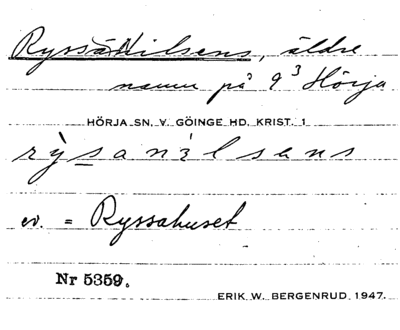 RyssåNilsens, äldre
namn på 9³ Hörja
HÖRJA SN. V. GÖINGE HD. KRIST. 1
rỳsanilsens
ev. = Ryssahuset
Nr 5359.
ERIK W. BERGENRUD 1947.